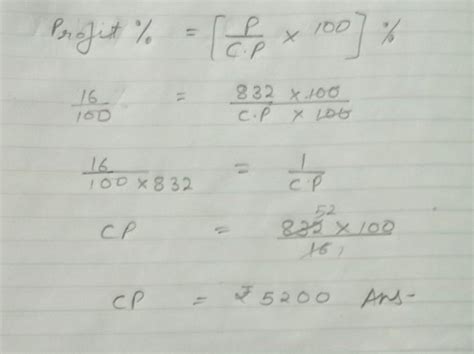 Profit % = [P/C.P × 100] %
16/100 = 832 × 100/C.P × 100
16/100 × 832 = 1/C.P
CP = 832 52 × 100/16 1
CP = ₹ 5200 Ans-